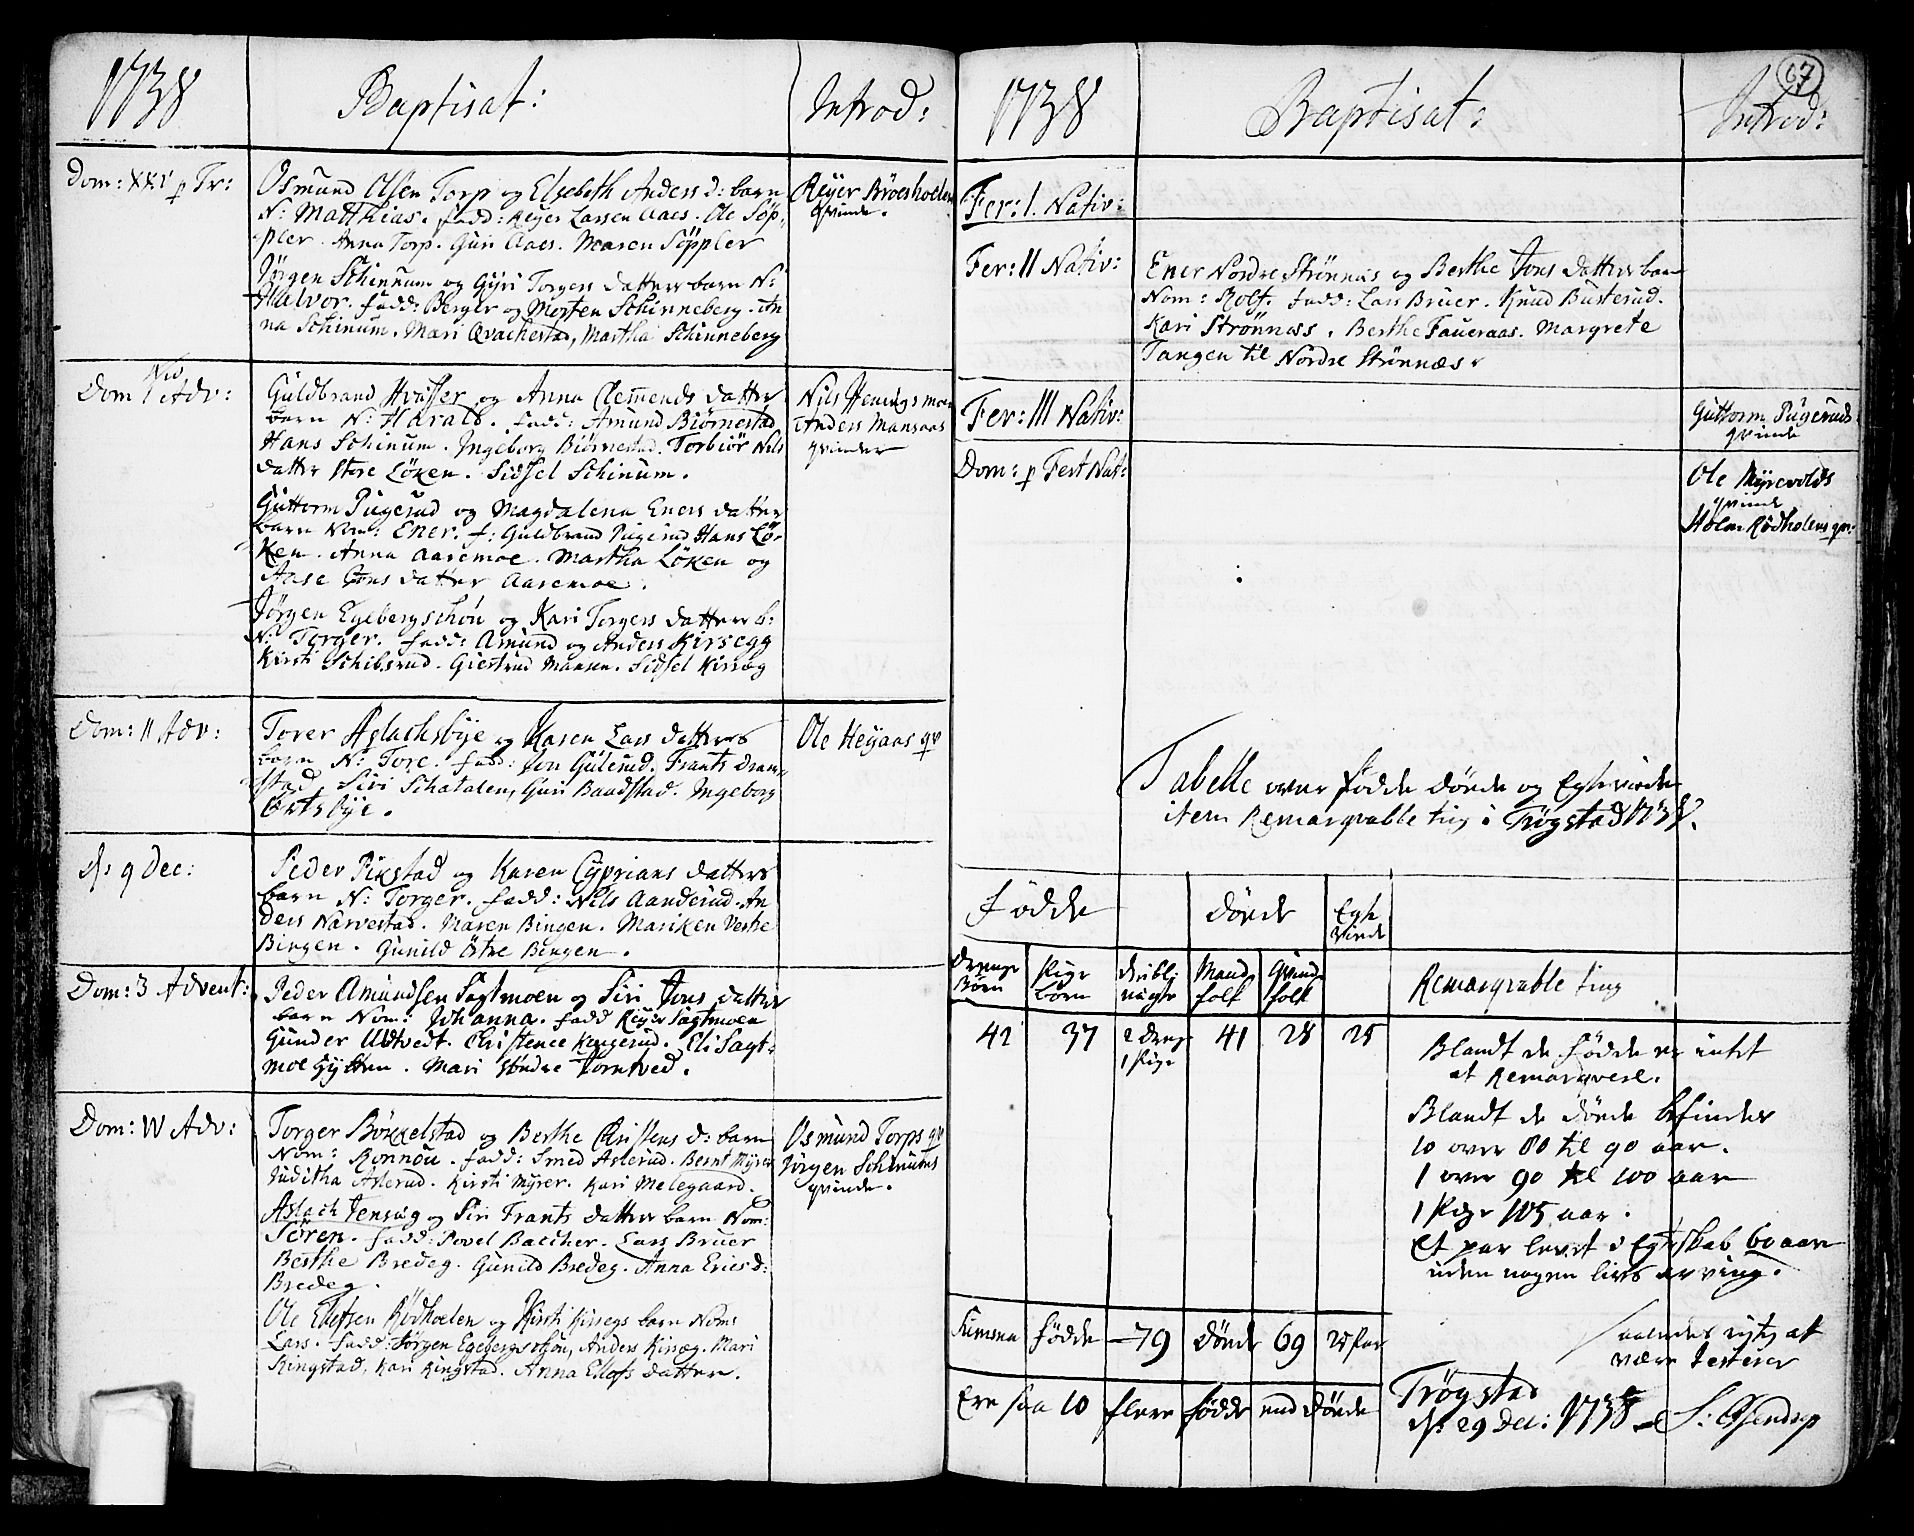 1738
Baptisat:
Introd:
Dom: XXI p Tr:
Osmund Olsen Torp og Elsebeth Anders d: barn
N: Matthias. fadd: Reyer Larsen Aaes. Ole Söp-
pler. Anna Torp. Guri Aaes. Maren Söppler
Jörgen Schinnum og Gyri Torgers datters barn N:
Halvor. fadd: Berger og Morten Schinneberg. An
na Schinum. Mari Qvachestad, Martha Schinneberg
Reyer Broesholen
qvinde.
Dom 1 Adv:
Guldbrand Hvasser og Anna Clemends datters
barn N: Harald. fadd: Amund Biörnestad
Hans Schinum. Ingeborg Biörnestad. Torbiör Nils
datter store Löken. Sidsel Schinum.
Guttorm Pugerud og Magdalena Eners datters
barn Nom: Ener. f: Guldbrand Pugerud Hans Lö-
ken. Anna Aaremoe. Martha Löken og
Aase Jons datter Aaremoe.
Jörgen Egebergschou og Kari Torgers datters b:
N: Torger. fadd: Amund og Anders Kirsegg
Kirsti Schibsrud. Giertrud Monsen. Sidsel Kirsæg
Nils Henings moe
Anders Mansaas
qvinder
Dom: II Adv:
Tover Aslachsbye og Karen Lars datters
barn N: Tore. fadd: Jon Gulerud. Frants Dram-
stad, Siri Schatalen, Guri Baadstad. Ingeborg
Ortsbye.
Ole Heyaas qv
ds 9 Dec:
Peder Pikstad og Karen Cyprians datters
barn N: Torger. fadd: Nils Aanderud. An
ders Narvestad. Maren Bingen. Mariken Vestre
Bingen. Gunild Östre Bingen.
Dom: 3 Advent:
Peder Amundsen Sagtmoen og Siri Jons datters
barn Nom: Johanna. fadd Reyer Sagtmoen
Gunder Udtvedt. Christence Kengerud. Eli Sagt-
moe Hytten. Mari Söndre Torntved.
Dom: IV Adv:
Torger Böckelstad og Berthe Christens d: barn
Nom: Ronnou. fadd: Smed Aslerud. Bernt Myrer
Juditha Aslerud. Kirsti Myrer. Kari Melegaard.
Aslach Jensæg og Siri Frants datters barn Nom:
Sören. fadd: Povel Batcher. Lars Bruer
Berthe Bredeg. Gunild Bredeg. Anna Erics d:
Bredeg.
Ole Ellefsen Rödholen og Kirsti Kirsegs barn Nom:
Lars. fadd: Jörgen Egebergschou, Anders Kirsæg. Mari
Kingstad, Kari Kingstad. Anna Ellefs datter.
Osmund Torps qv
Jörgen Schinums
qvinde.
67
1738
Baptisat:
Introd:
Fer: I. Nativ:
Fer: II Nativ:
Ener Nordre Strönnæs og Berthe Jons datters barn
Nom: Rolf. fadd: Lars Bruer. Knud Busterud.
Kari Strönnæss. Berthe Faueraas. Margrete
Tangen til Nordre Strönnæs.
Fer: III Nativ:
Guttorm Pugeruds
qvinde
Dom: p Fest Nat:
Ole Myrevolds
qvinde
Holm Rödholens qv:
Tabelle over födde dörde og Egteviede
item Remarqvable ting i Trögstad 1738.
Födde
dörde
Egte
viede
Drenge
Börn
Pige
börn
Mand
folk
Qvind
folk
Remarqvable ting
42
37
2 dreng
1 Pige
41
28
25
Blandt de födde er intet
at Remarqvere.
Blandt de dörde befindes
10 over 80 til 90 aar.
1 over 90 til 100 aar
1 Pige 105 aar.
Et par levet i Egteskab 60 aar
uden nogen livs arving.
Summa
födde
79
dörde
69
25 Par
Ere saa 10 flere födde end dörde
saaledes rigtig at
være Testerer
Trögstad
ds 29 Dec: 1738